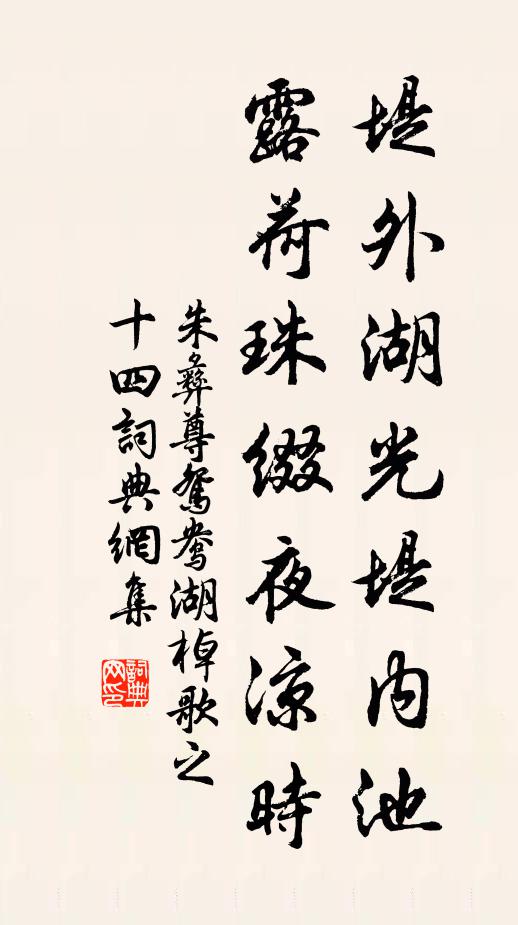 堤外湖光堤內池
露荷珠綴夜涼時
朱彝尊鴛鴦湖棹歌之
十四詞典網集
詞典網印